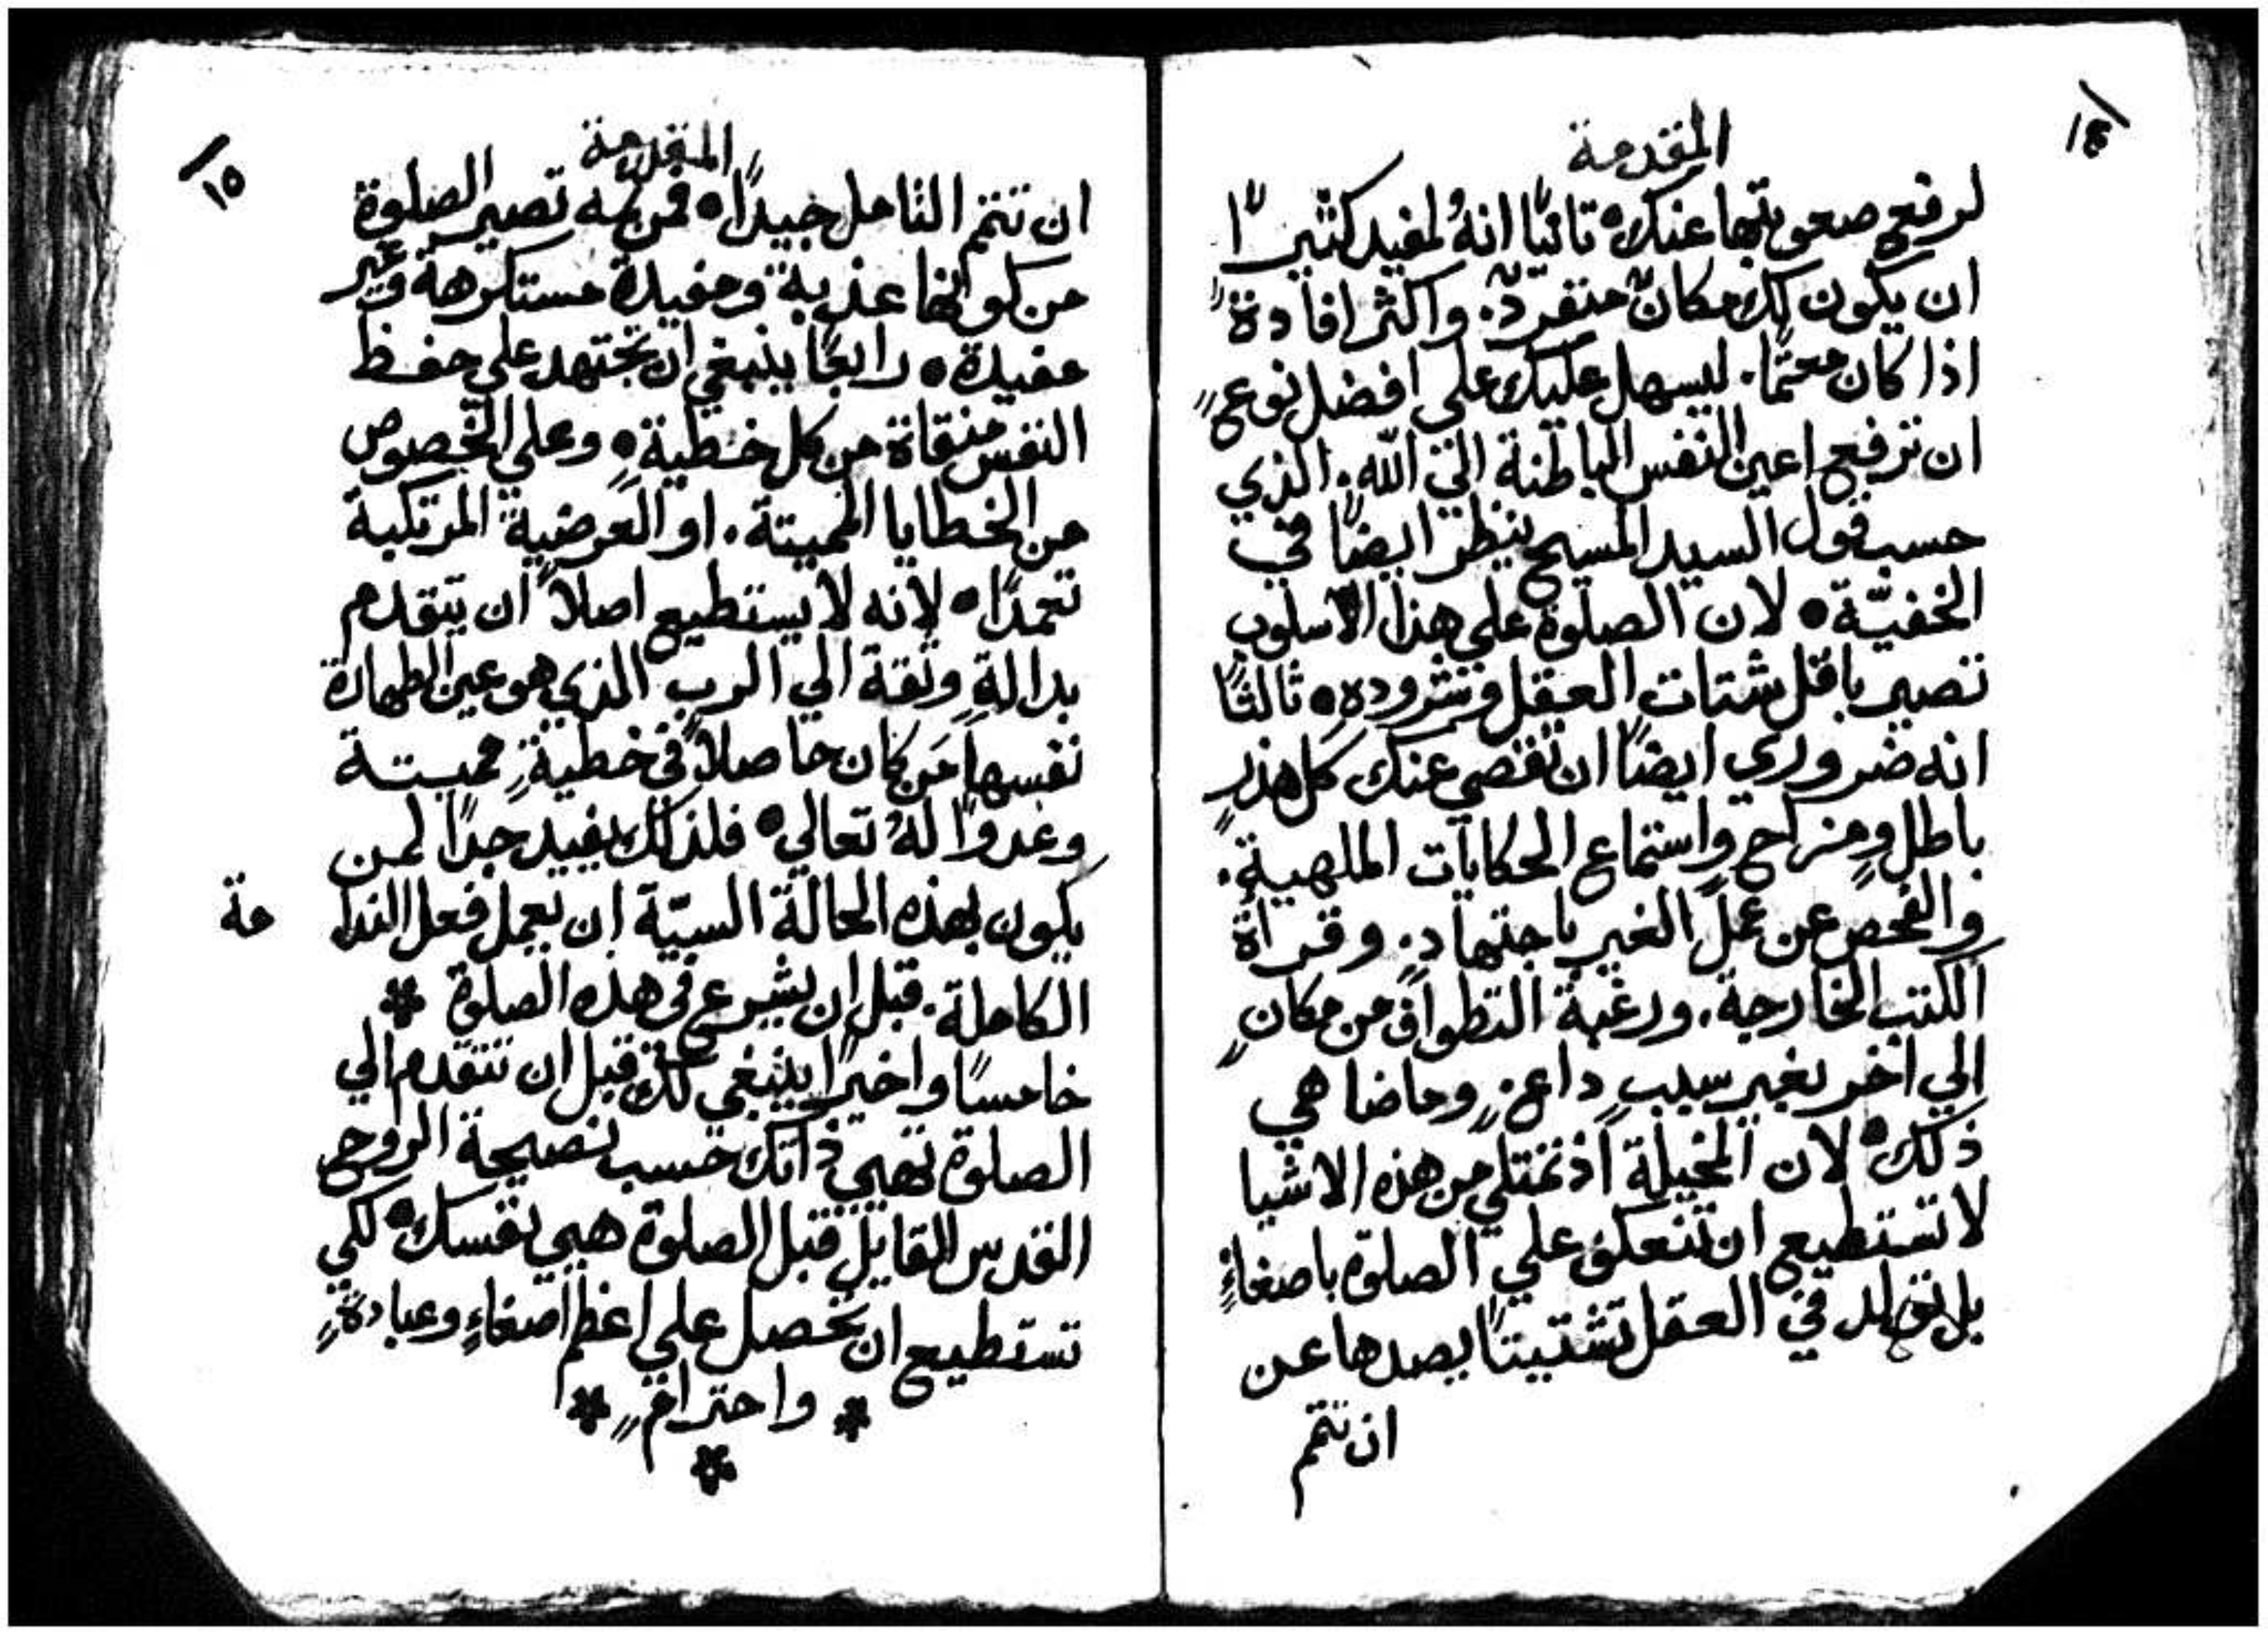 ١٤
المقدمة
لرفع صعوبتها عنك • ثانيًا انهُ لمفيد كثيرًا
ان يكون لك مكانٌ منفردٌ. واكثر افادةً
اذا كان معتمًا. ليسهل عليك على افضل نوعٍ
ان ترفع اعين النفس الباطنة الي الله. الذي
حسب قول السيد المسيح ينظر ايضًا في
الخفيّة • لان الصلوة علي هذا الاسلوب
تصير باقل شتات العقل وشرودهِ • ثالثًا
انه ضروري ايضًا ان تقصي عنك كل هذرٍ
باطل ومزاحٍ واستماع الحكايات الملهيةِ.
والفحص عن عمل الغير باجتهادٍ. وقراة
الكتب الخارجة. ورغبة التطواف من مكانٍ
الي اخر بغير سببٍ داعٍ. وماضاهي
ذلك • لان المخيلة اذ تمتلي من هذه الاشيا
لا تستطيع ان تنعكف علي الصلوة باصغاءٍ
بل تولد في العقل تشتيتًا يصدها عن
ان تتمم
١٥
المقدمة
ان تتمم التامل جيدًا • فمن ثمه تصير الصلوة
من كونها عذبة ومفيدة مستكرهة وغير
مفيدة • رابعًا ينبغي ان تجتهد علي حفظ
النفس منقاة من كل خطيةٍ • وعلي الخصوص
من الخطايا المميتة. او العرضية المرتكبة
تعمدًا • لانه لا يستطيع اصلاً ان يتقدم
بدالةٍ وثقة الي الرب الذي هو عين الطهارة
نفسها مَن كان حاصلاً في خطيةٍ مميتة
وعدوًا لهُ تعالي • فلذلك يفيد جدًا لمن
يكون بهذه الحالة السيّة ان يعمل فعل الندا مة
الكاملة. قبل ان يشرع في هذه الصلوة *
خامسًا واخيرًا ينبغي لك قبل ان تتقدم الي
الصلوة تهيي ذاتك حسب نصيحة الروح
القدس القايل قبل الصلوة هيي نفسك • لكي
تستطيع ان تحصل علي اعظم اصغاءٍ وعبادةٍ
* واحترامٍ *
*